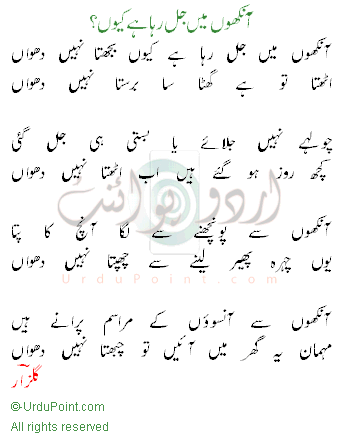 آنکھوں میں جل رہا ہے کیوں؟
آنکھوں میں جل رہا ہے کیوں بجھتا نہیں دھواں
اٹھتا تو ہے گھٹا سا برستا نہیں دھواں
چولہے نہیں جلائے یا بستی ہی جل گئی
کچھ روز ہو گئے ہیں اب اٹھتا نہیں دھواں
اردو پوائنٹ
UrduPoint.com
آنکھوں سے پونچھنے سے لگا آنچ کا پتا
یوں چہرہ پھیر لینے سے چھپتا نہیں دھواں
آنکھوں سے آنسوؤں کے مراسم پرانے ہیں
مہماں یہ گھر میں آئیں تو چبھتا نہیں دھواں
گلزار
©-UrduPoint.com
All rights reserved